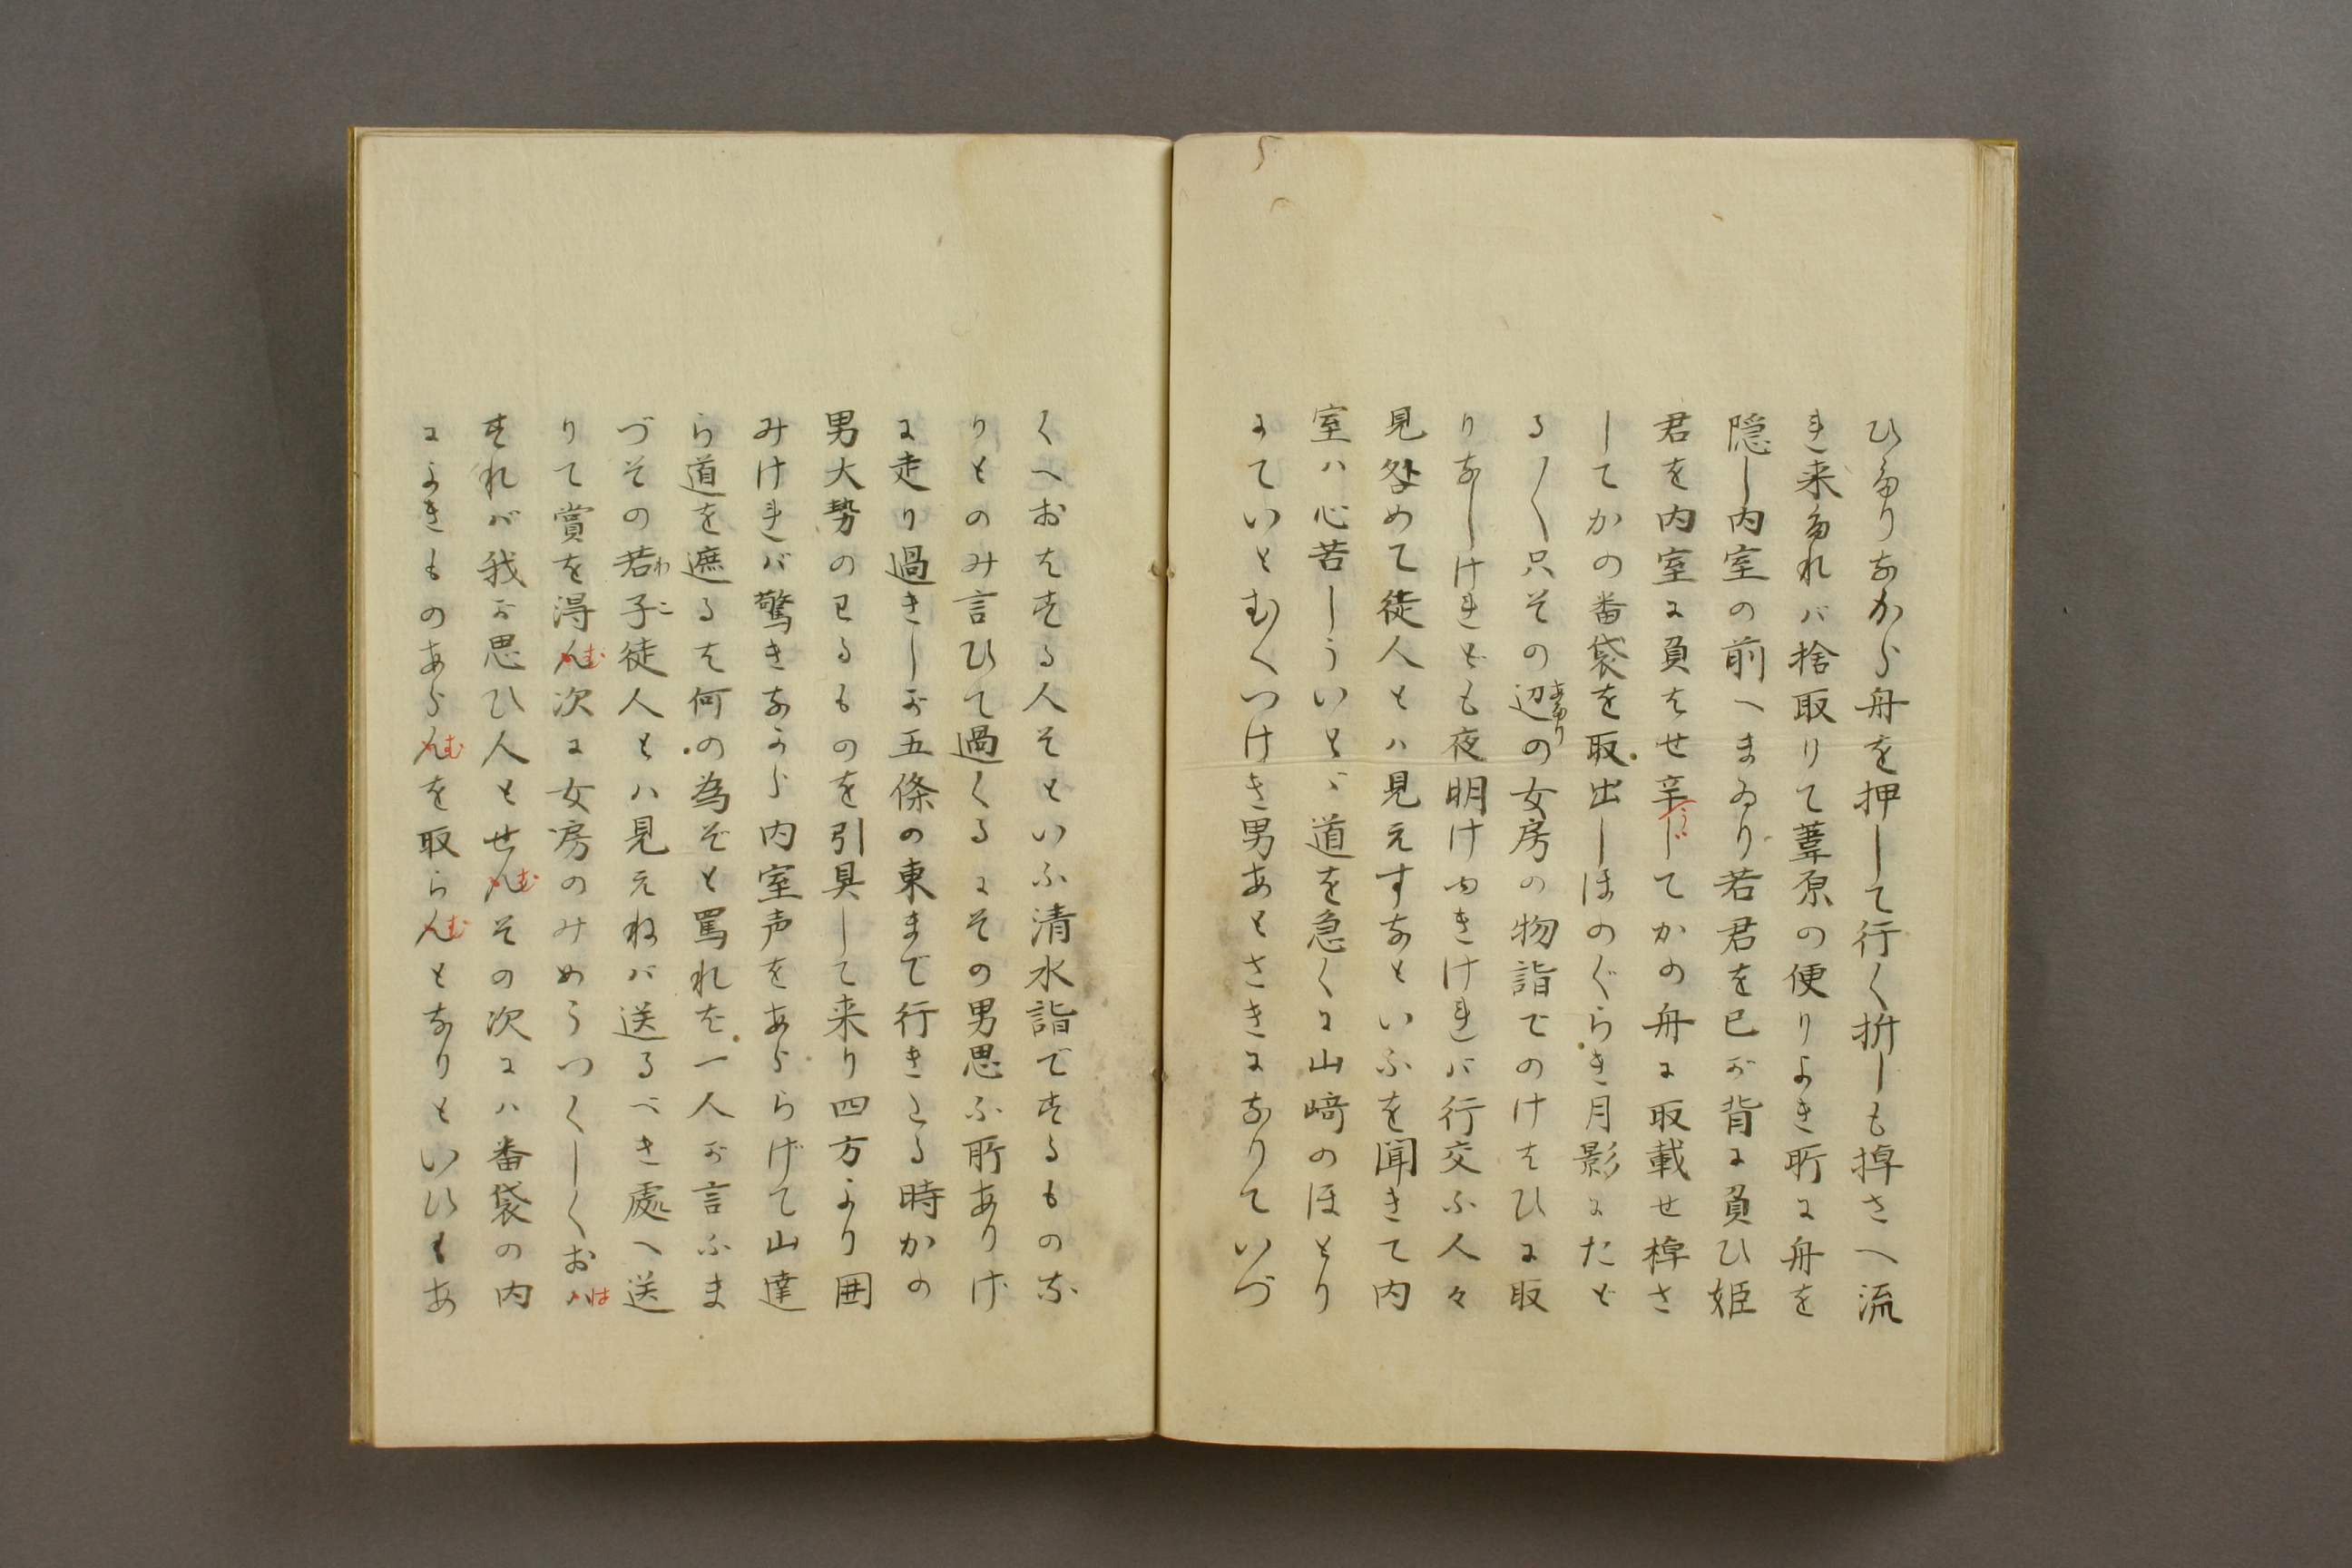 ひたりなから舟を押して行く拆しも掉さへ流
き来たれバ捨取りて葦原の便りよき所に舟を
隠し内室の前へまゐり若君を已が背に負ひ姫
君を内室に負はせ辛じてかの舟に取載せ棹さ
してかの番袋を取出しほのぐらき月影にたど
る〳〵只その辺あたりの女房の物詣でのけはひに取
りなしけれども夜明けゆきければ行交ふ人々
見咎めて徒人とハ見えすなといふを聞きて内
室ハ心苦しういとゞ道を急くに山﨑のほとり
にていとむくつけき男あとさきになりていづ
くへおはする人そといふ清水詣でするものな
りとのみ言ひて過くるにその男思ふ所ありけ
に走り過きしが五條の東まで行きたる時かの
男大勢のわるものを引具して来り四方より囲
みければ驚きながら内室声をあららげて山達
ら道を遮るは何の為ぞと罵れを一人が言ふま
づその若わ子こ徒人とハ見えねバ送るべき處へ送
りて賞を得んむ次に女房のみめうつくしくおハは
すれバ我が思ひ人とせんむその次にハ番袋の内
によきものあらんむを取らんむとなりといひもあ